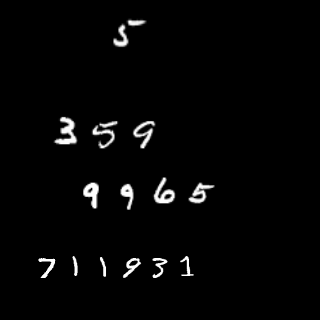 5
359
9965
711931